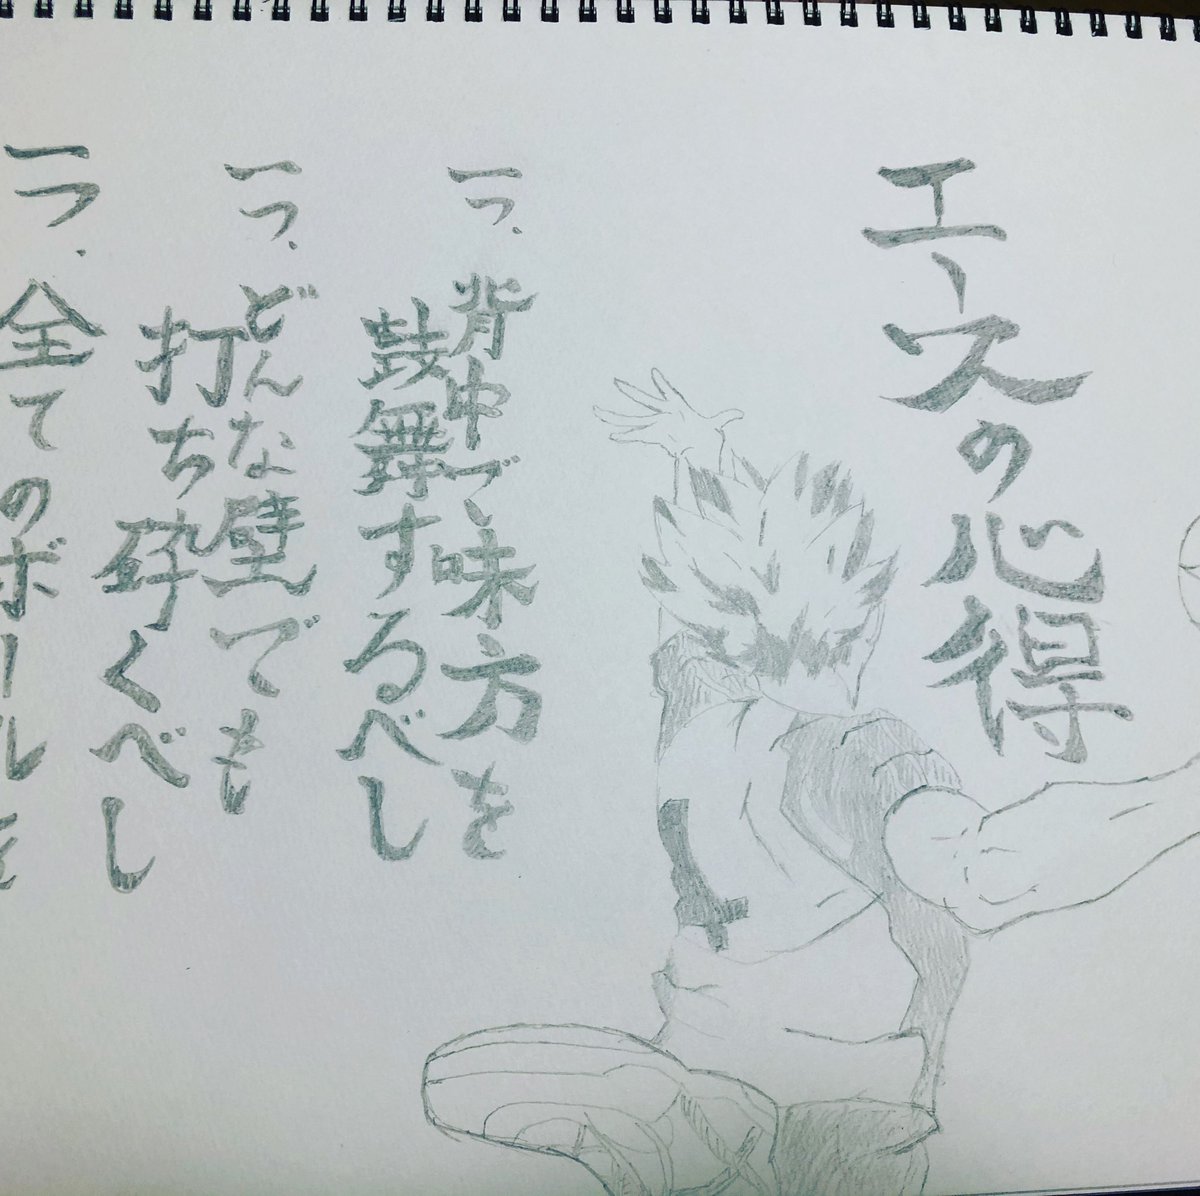 エースの心得
一つ、背中で味方を
鼓舞するべし
一つ、どんな壁でも
打ち砕くべし
一つ、全てのボールを